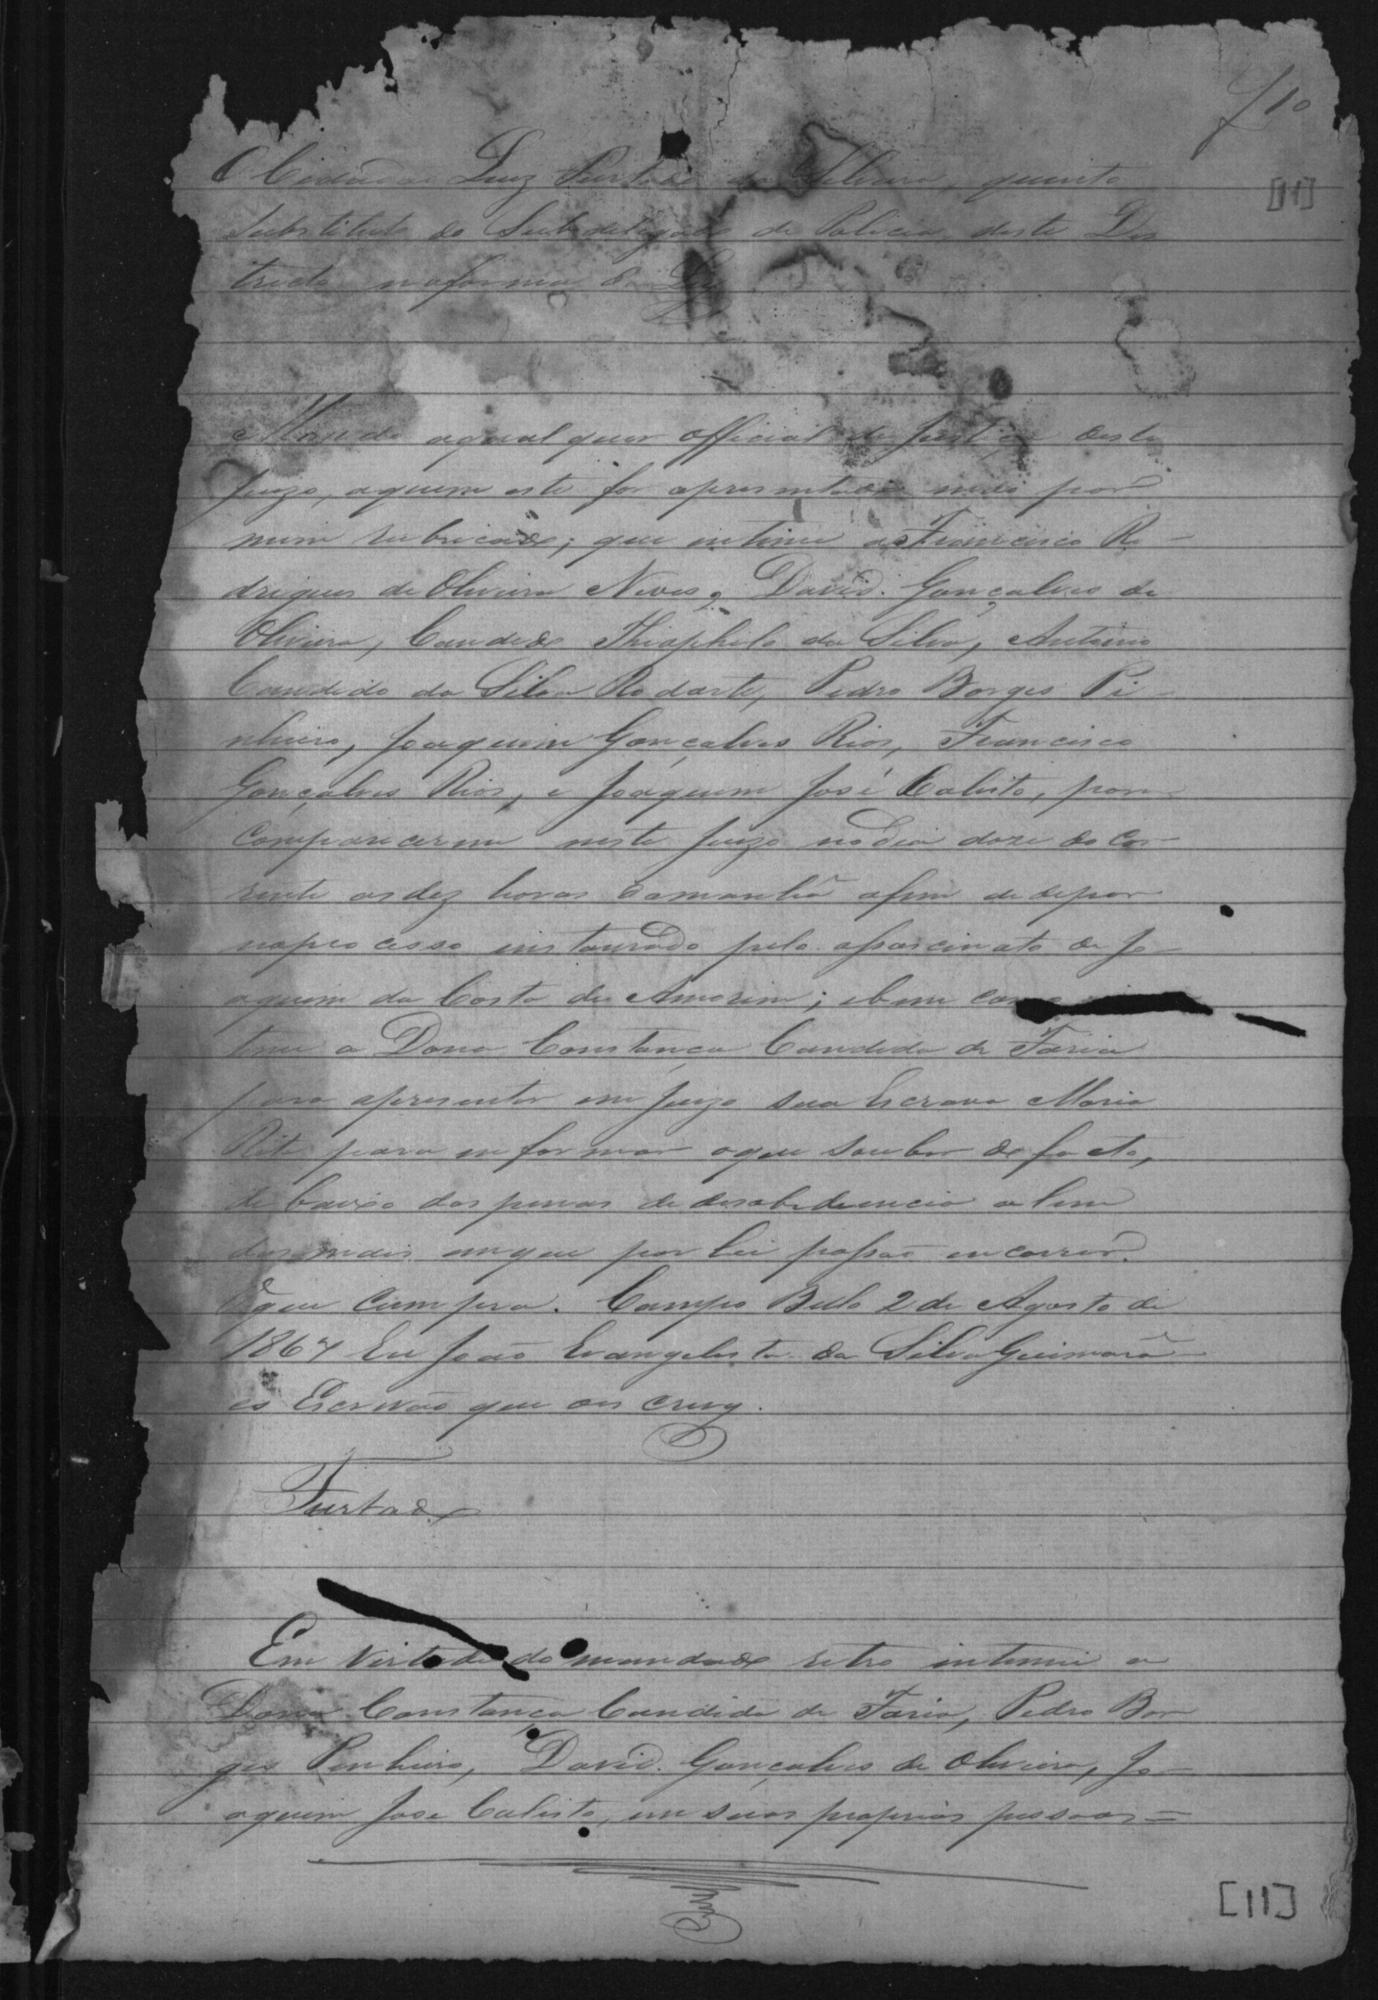 f 10
[11]
O Cidadão Luiz Furtado da Silveira, quinto
Substituto do Subdelegado de Policia deste Des
tricto na forma da Lei
Mando aqual quer official de Justiça deste
Juizo, aquem este for apresentado indo por
mim rubricado; que intime a Francisco Ro-
drigues de Oliveira Neves, David Gonçalves de
Oliveira, Candido Thiophelo da Silva, Antonio
Candido da Silva Rodarte, Pedro Borges Pi-
nheiro, Joaquim Gonçalves Rios, Francisco
Gonçalves Rios, e Joaquim José Calisto, para
comparecerem neste Juizo no dia doze do cor-
rente as dez horas damanhã afim de depor
no processo instaurado pelo assascinato de Jo-
aquim da Costa de Amorim; e bem como in
time a Dona Constança Candida de Faria
para apresentar em Juizo sua Escrava Maria
Rita para informar oque souber do facto,
de baixo das penas de desobediencia alem
das mais em que por Lei possão encorrer.
O que cumpra. Campo Bello 2 de Agosto de
1867 Eu João Evangelista da Silva Guimarã
es Escrivão que os crevy.
Furtado
Em Virtude do mandado retro intimei a
Dona Constança Candida de Faria, Pedro Bor
ges Pinheiro, David Gonçalves de Oliveira, Jo-
aquim Jose Calisto, em suas proprias pessoas=
[11]